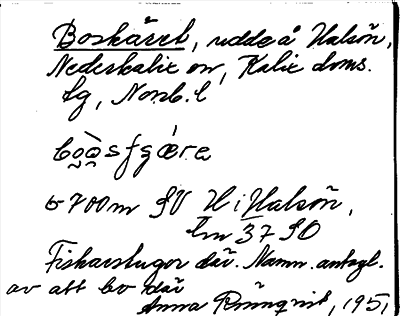 Boskäret, udde å Halsön,
Nederkalix sn, Kalix doms.
fg, Norrb. l
bo̯å̯sfgǽre
c 700 m SV H i Halsön,
lm 37 SO
Fiskarstugor där. Namn. antagl.
av att bo där
Anna 1951